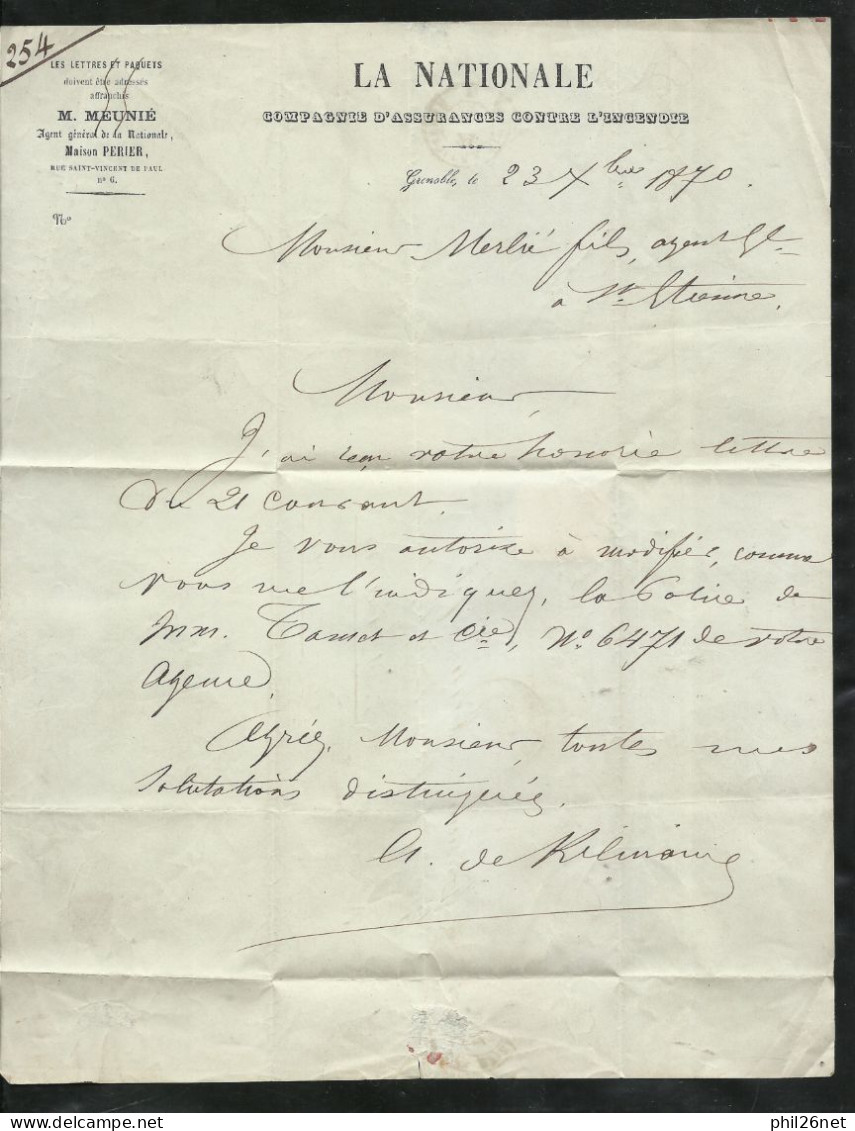 254
LES LETTRES ET PAQUETS
doivent être adressés
affranchis
M. MEUNIÉ
Agent général de la Nationale,
Maison PERIER,
RUE SAINT-VINCENT DE PAUL
n° 6.
LA NATIONALE
COMPAGNIE D'ASSURANCES CONTRE L'INCENDIE
Grenoble, le 23 Xbre 1870.
N°
Monsieur Merlié fils, agent Gl
à St Etienne.
Monsieur,
J'ai reçu votre honorée lettre
du 21 courant.
Je vous autorise à modifier, comme
vous me l'indiquez, la Police de
MM. et Cie, N° 6471 de votre
Agence.
Agréez, Monsieur, toutes mes
salutations distinguées.
de
phil26net